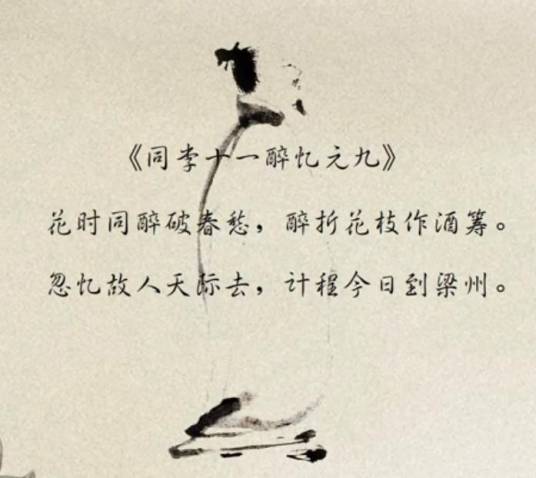 《同李十一醉忆元九》
花时同醉破春愁，醉折花枝作酒筹。
忽忆故人天际去，计程今日到梁州。